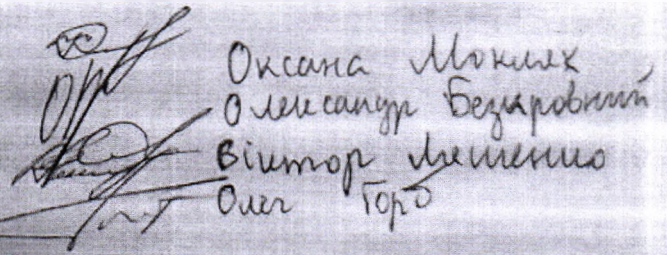 Оксана Мокляк
Олександр Безкровний
Віктор Лешенко
Олег Горб